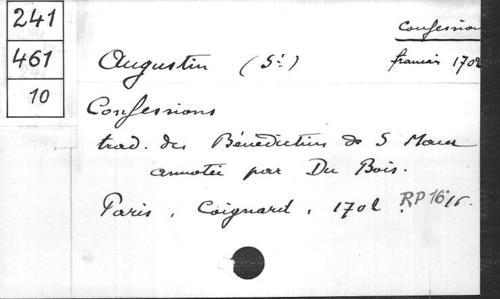 241
461
10
Confession
francais 1702
Augustin (St)
Confessions
trad. des Bénédictins de S Maur
annotée par Du Bois.
Paris, Coignard, 1702. RP 16° 16.